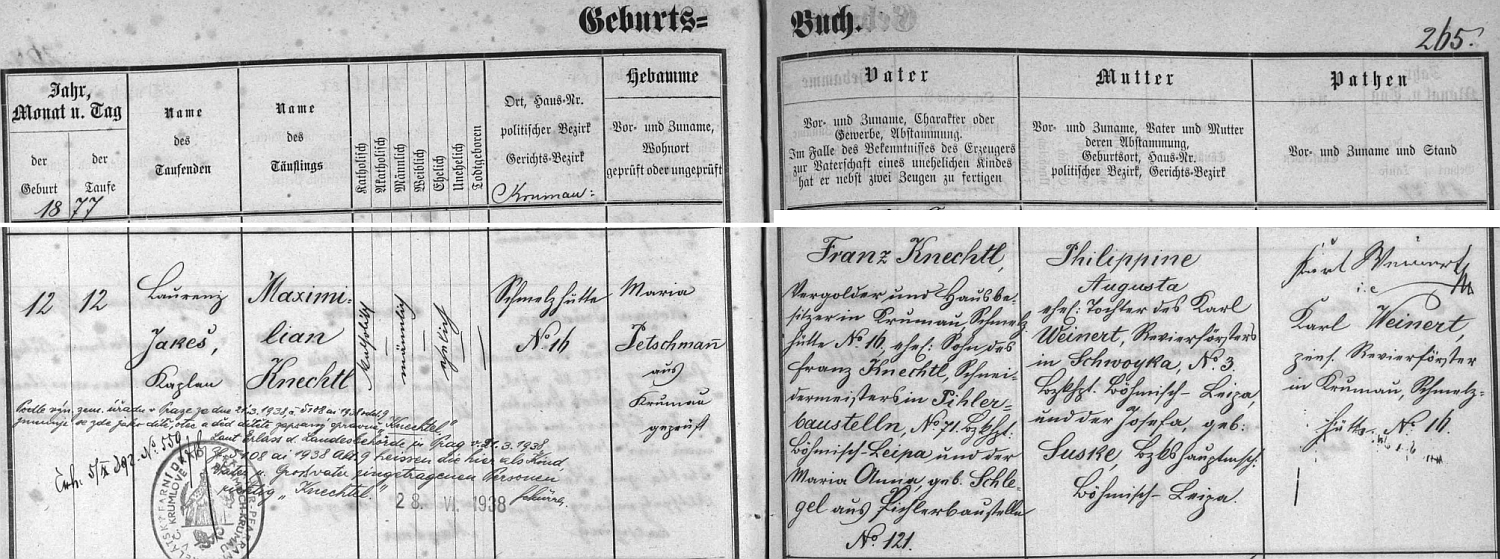 Geburts=
Buch.
265.
Jahr,
Monat u. Tag
der
Geburt
der
Taufe
1877
Name
des
Taufenden
Name
des
Täuflings
Katholisch
Akatholisch
Männlich
Weiblich
Ehelich
Unehelich
Todtgeboren
Ort, Haus-Nr.
politischer Bezirk
Gerichts-Bezirk
Krumau:
Hebamme
Vor- und Zuname,
Wohnort
geprüft oder ungeprüft
Vater
Vor- und Zuname, Charakter oder
Gewerbe, Abstammung.
Im Falle des Bekenntnisses des Erzeugers
zur Vaterschaft eines unehelichen Kindes
hat er nebst zwei Zeugen zu fertigen
Mutter
Vor- und Zuname, Vater und Mutter
deren Abstammung,
Geburtsort, Haus-Nr.
politischer Bezirk, Gerichts-Bezirk
Pathen
Vor- und Zuname und Stand
12
12
Laurenz
Jakeš,
Kaplan
Maximi-
lian
Knechtl
katholisch
männlich
ehelich
Schmelzhütte
No 16
Maria
Petschman
aus
Krumau
geprüft
Podle výn. zem. úřadu v Praze ze dne 21.3.1938 č. 5108 ai 1938 odd. 9
zde jako dítě, otec a děd dítěte zapsaný správně "Knechtel"
Laut Erlass d. Landesbehörde in Prag v. 21.3.1938
5108 ai 1938 Abt. 9 heissen die hier als Kind,
Vater u. Grossvater eingetragenen Personen
richtig "Knechtel."
28. VI. 1938
Franz Knechtl,
Vergolder und Hausbe-
sitzer in Krumau, Schmelz-
hütte No 16, ehel: Sohn des
Franz Knechtl, Schnei-
dermeisters in Pihler-
baustelln, No 71. Bzkhpt:
Böhmisch-Leipa und der
Maria Anna, geb. Schle-
gel aus Pihlerbaustelln
No 121.
Philippine
Augusta
ehel: Tochter des Karl
Weinert, Revierförsters
in Schwoyka, No 3.
Bzkhpt. Böhmisch-Leipa,
und der Josefa, geb:
Suske, Bzkshauptmsch.
Böhmisch-Leipa.
Karl Weinert
i. e.
Karl Weinert,
pens. Revierförster
in Krumau, Schmelz-
hütte No 16.